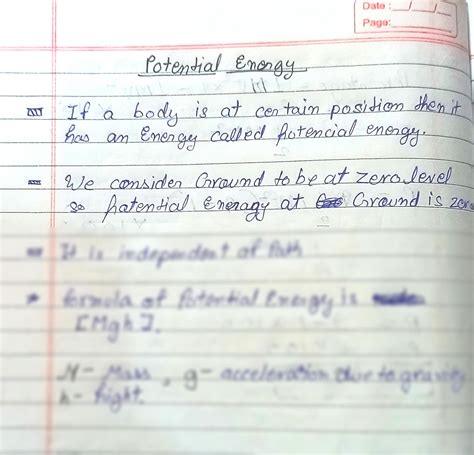 Date : __/__/__
Page:
Potential Energy
If a body is at certain position then it
has an Energy called Potencial energy.
We consider Ground to be at zero level
so patential Eneragy at Ground is zero
It is independent of Path
formula of Potential Energy is
[Mgh].
M - Mass, g - acceleration due to gravity
h - hight.